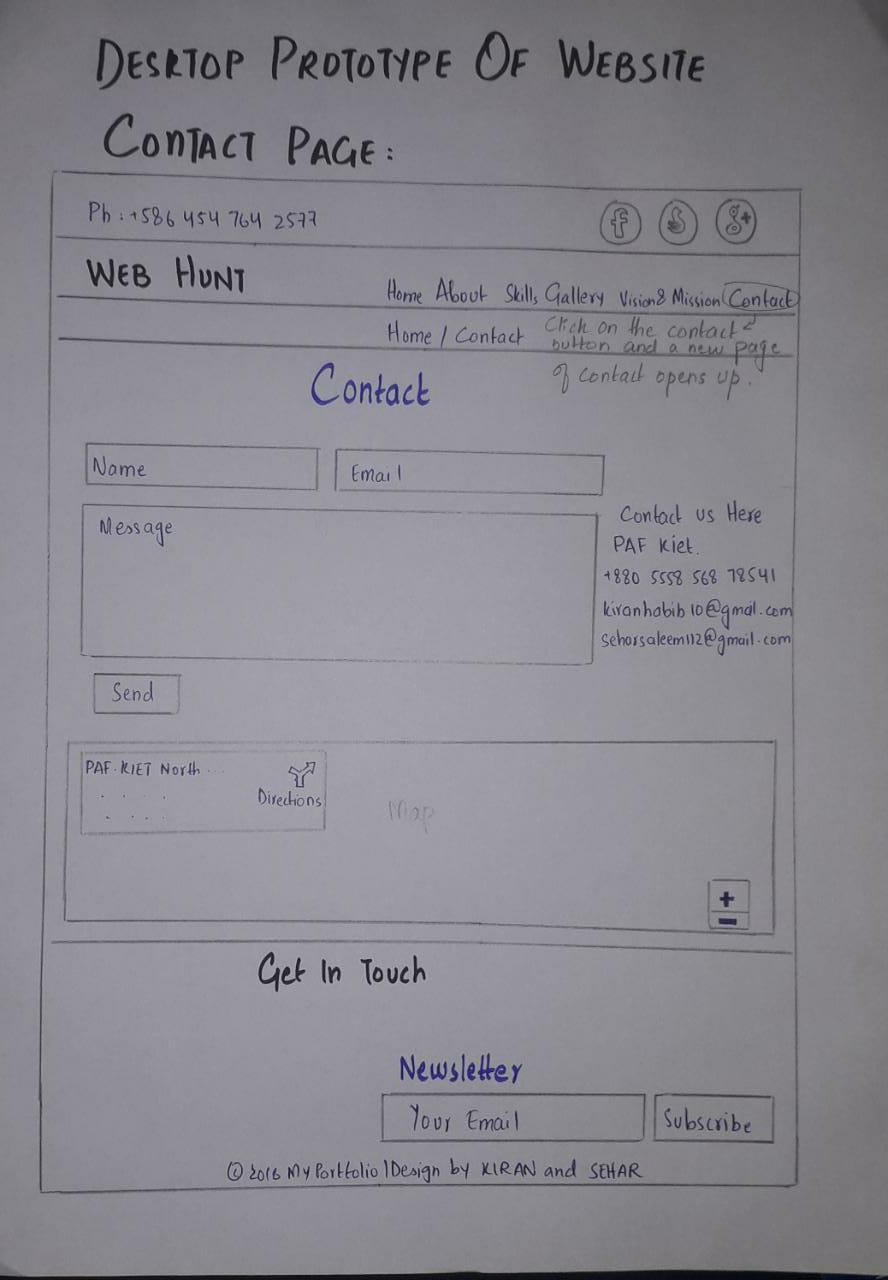 DESKTOP PROTOTYPE OF WEBSITE
CONTACT PAGE:
Ph: +586 454 764 2577
f g+
WEB HUNT
Home About Skills Gallery Vision& Mission Contact
Home / Contact
Click on the contact
button and a new page
of contact opens up.
Contact
Name
Email
Message
Contact us Here
PAF Kiet.
+880 5558 568 78541
kiranhabib10@gmail.com
seharsaleem112@gmail.com
Send
PAF-KIET North ...
Directions
Map
+
-
Get In Touch
Newsletter
Your Email
Subscribe
© 2016 My Portfolio | Design by KIRAN and SEHAR